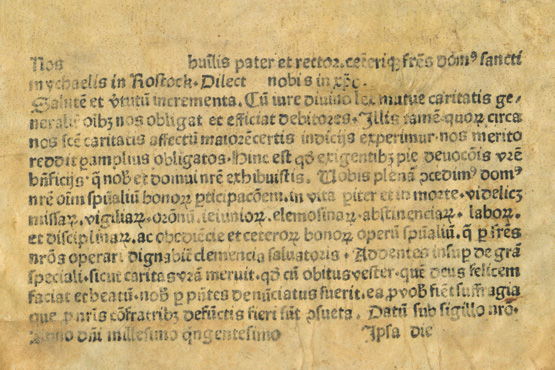 Nos huı̄lis pater et rector. ceteriq; frēs dom⁹ sancti
mychaelis in Rostock. Dilect nobis in xp̄o.
Salutē et v̓tutū incrementa. Cū iure diuino lex mutue caritatis ge⸗
neralit̓ oībꝫ nos obligat et efficiat debitores. Illis tamē quoꝝ circa
nos scē caritatis affectū maiorē certis indicijs experimur. nos merito
reddit ꝑamplius obligatos. Hinc est qd̓ exigentibꝫ pie deuocōis vrē
bn̄ficijs. q̄ nob̓ et domui nrē exhibuistis. Vobis plenā ꝓcedim⁹ dom⁹
nrē oīm spūaliū bonoꝝ ꝑticipacōem. in vita ꝑiter et in morte. videlicꝫ
missaꝝ. vigiliaꝝ. orōnū. ieiunioꝝ. elemosinaꝝ. abstinenciaꝝ. laboꝝ.
et disciplinaꝝ. ac obediēcie et ceteroꝝ bonoꝝ operū spūaliū. q̄ ꝑ frēs
nrōs operari dignabit̓ clemencia saluatoris. Addentes insuꝑ de grā
speciali. sicut caritas vrā meruit. qd̓ cū obitus vester. quē deus felicem
faciat et beatū. nob̓ ꝑ pn̄tes denūciatus fuerit. ea ꝓ vob̓ fiēt suffragia
que ꝓ nr̄is cōfratribꝫ defūctis fieri sūt ꝯsueta. Datū sub sigillo nrō.
Anno dn̄i millesimo qn̄gentesimo Ipsa die